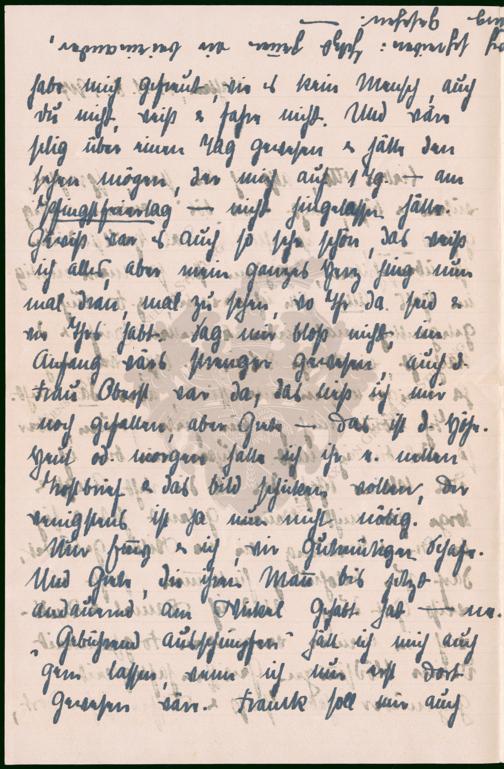 habe mich gefreut, wie es kein Mensch, auch
du nicht, weiß & fahre nicht. Und wäre
selig über einen Tag gewesen & hätte den
sehen mögen, der mich auf 1 Tg. – am
Pfingstfeiertag – nicht hingelassen hätte.
Gewiß war es auch so sehr schön, das weiß
ich alles, aber mein ganzes Herz hing nun
mal dran, mal zu sehen, wo Ihr da seid &
wie Ihrs habt. Sag mir bloß nicht, im
Anfang wärs strenger gewesen, auch d.
Frau Oberst war da, das ließ ich mir
noch gefallen, aber Grete – das ist d. Höhe.
Heut od. morgen hätte ich ihr e. netten
& das Bild schicken wollen, der
wenigstens ist ja nun nicht nötig.
Nur & ich, wir gutmütigen Schafe.
Und Grete, die ihren Mann bis jetzt
andauernd am gehabt hat – na.
"Gebührend ausschimpfen" hätt ich mich auch
gern lassen, wenn ich nur erst dort
gewesen wär. Franck soll mir auch